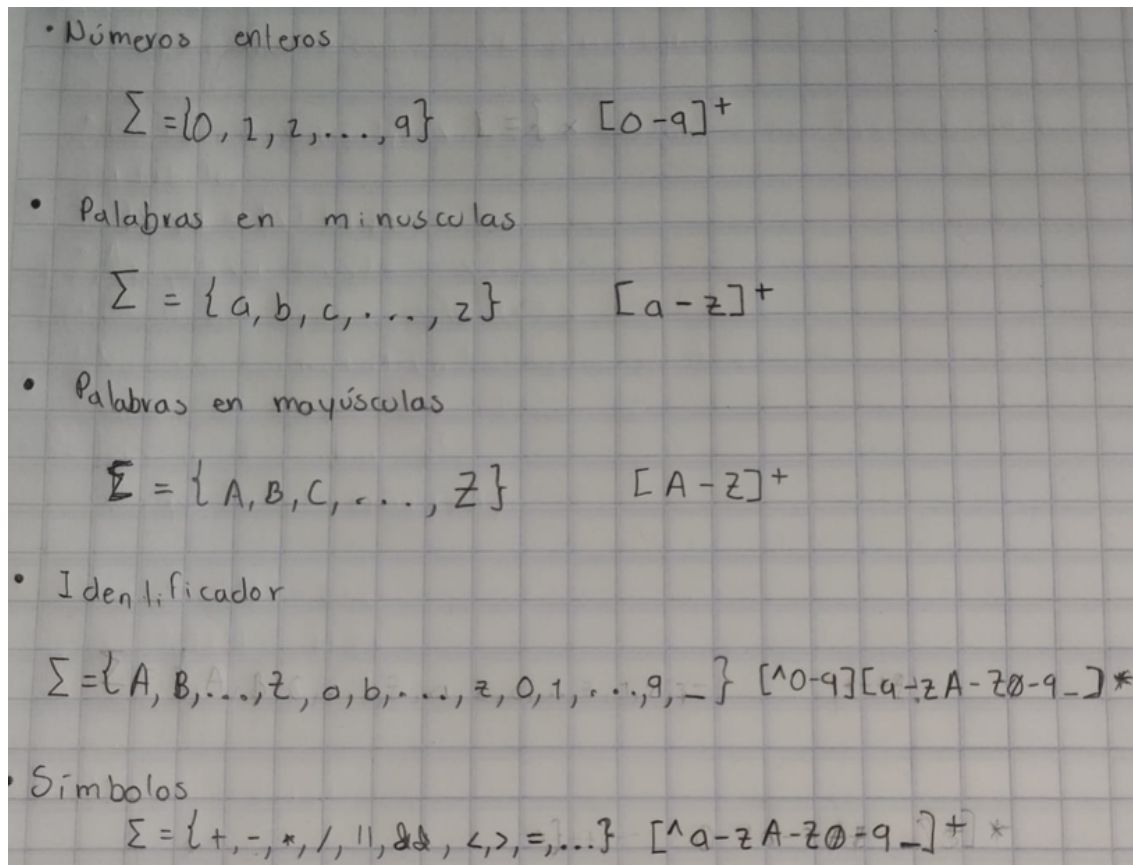 • Números enteros
Σ = {0, 1, 2, ..., 9} [0-9]+
• Palabras en minusculas
Σ = {a, b, c, ..., z} [a-z]+
• Palabras en mayúsculas
Σ = {A, B, C, ..., Z} [A-Z]+
• Identificador
Σ = {A, B, ..., Z, a, b, ..., z, 0, 1, ..., 9, _} [^0-9][a-zA-Z0-9_]*
• Símbolos
Σ = {+, -, *, /, ||, &&, <, >, =, ...} [^a-zA-Z0-9_]+